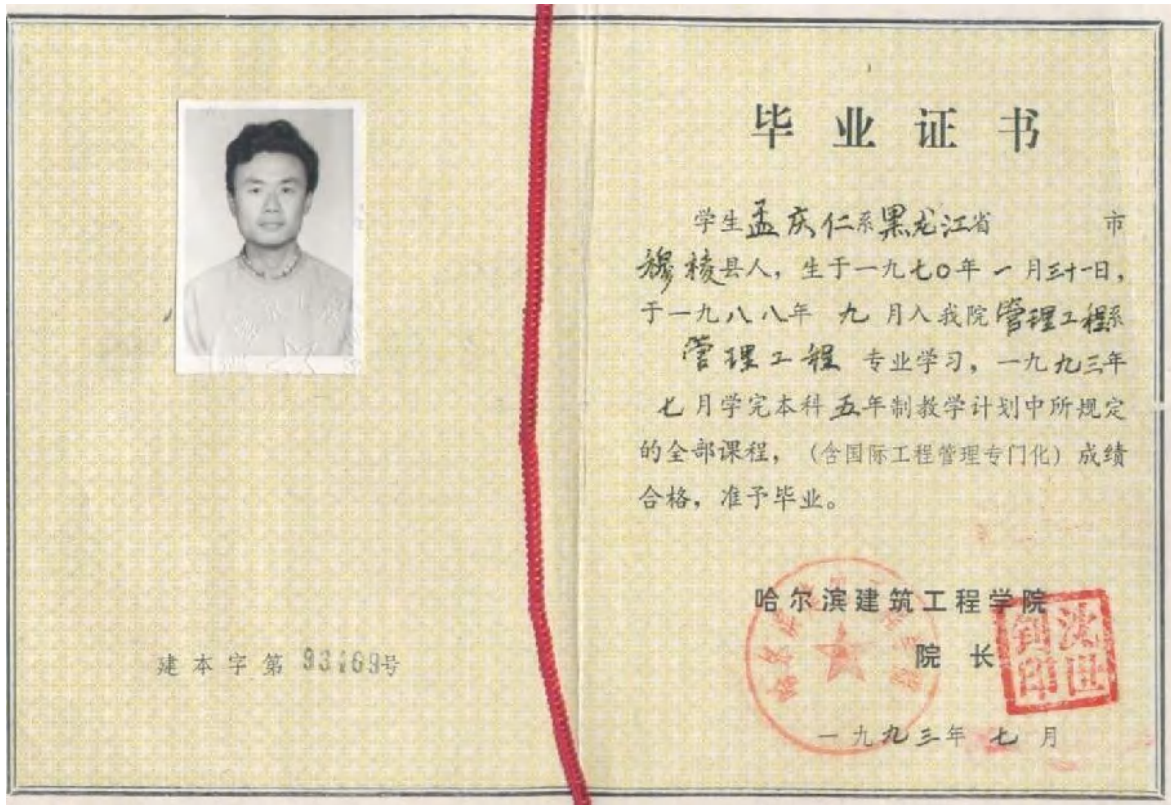 毕业证书
学生孟庆仁系黑龙江省 市
穆棱县人，生于一九七〇年一月三十一日，
于一九八八年 九 月入我院管理工程系
管理工程 专业学习，一九九三年
七月学完本科五年制教学计划中所规定
的全部课程，（含国际工程管理专门化）成绩
合格，准予毕业。
哈尔滨建筑工程学院
院 长
沈世钊印
一九九三年 七 月
建本字第 93169号